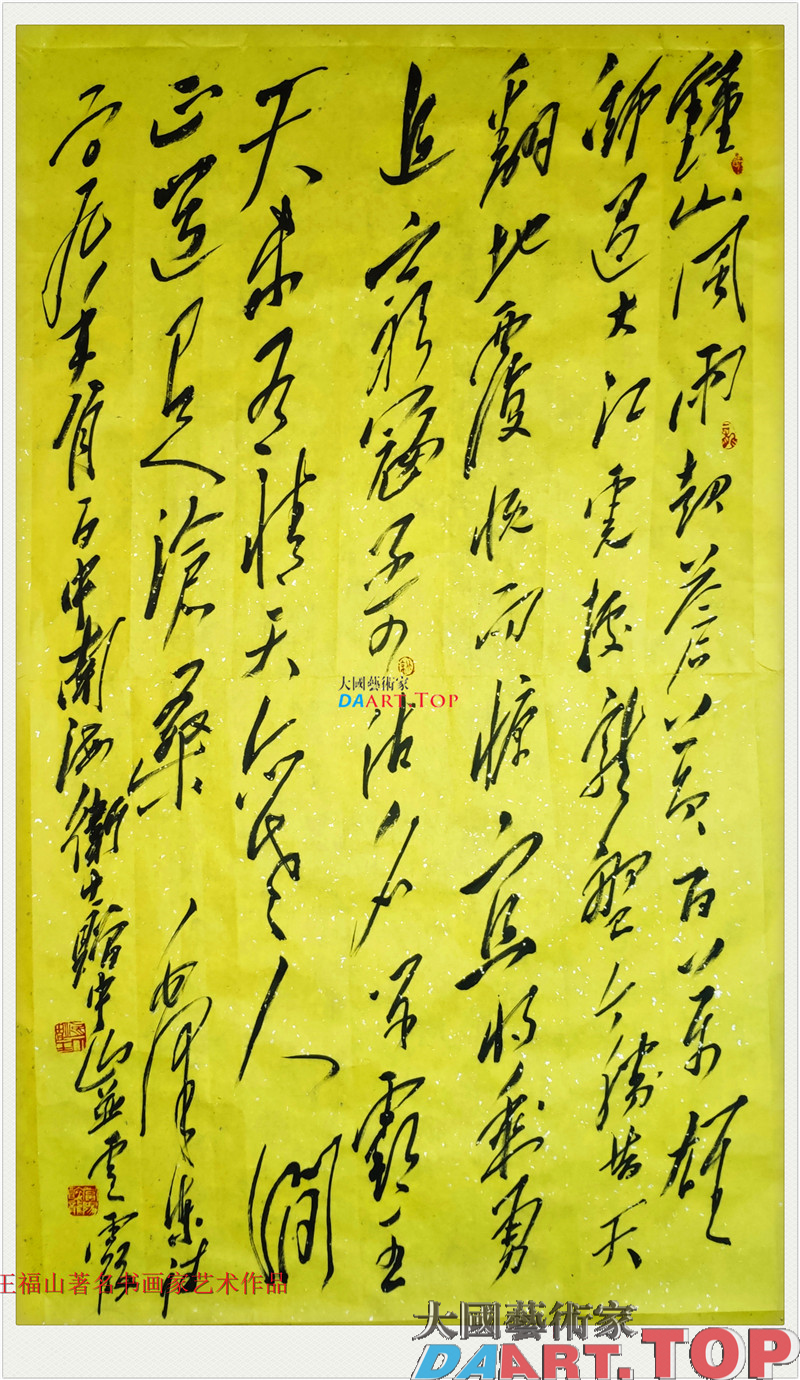 鐘山風雨起蒼黃百萬雄
師過大江虎踞龍盤今勝昔天
翻地覆慨而慷宜將剩勇
追窮寇不可沽名學霸王
天若有情天亦老人間
正道是滄桑 毛澤東詩
年 月 中南海衛士贈中山並雲霞
大國藝術家
DAART.TOP
王福山著名书画家艺术作品
大國藝術家
DAART.TOP